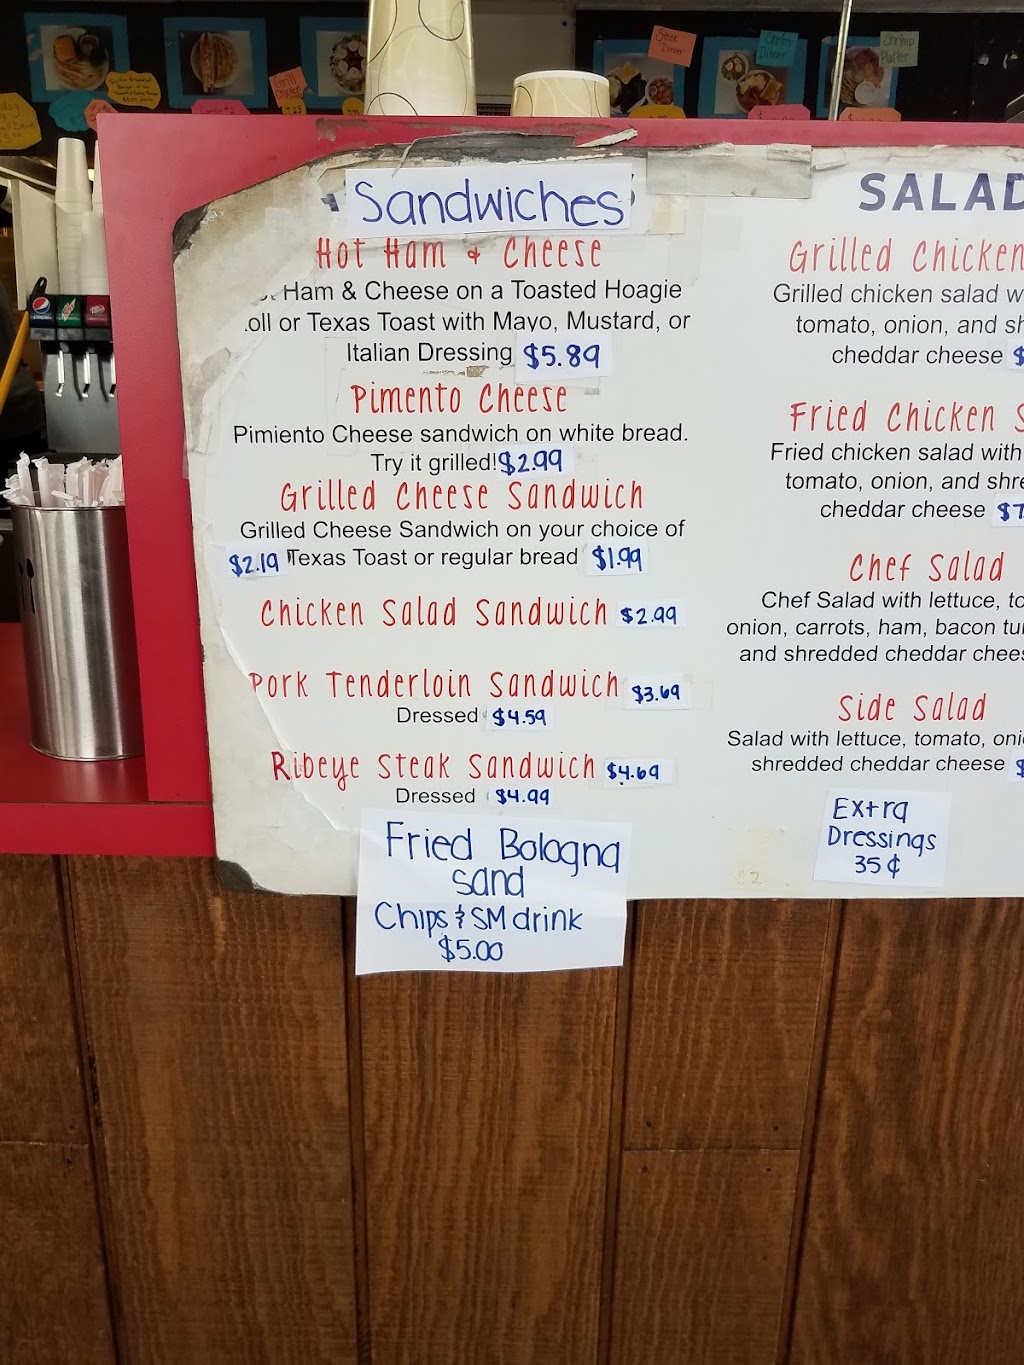 Steak
Dinner
Shrimp
Dinner
Shrimp
Platter
Grill
Chicken
7.25
Sandwiches
Hot Ham & Cheese
Ham & Cheese on a Toasted Hoagie
or Texas Toast with Mayo, Mustard, or
Italian Dressing $5.89
Pimento Cheese
Pimiento Cheese sandwich on white bread.
Try it grilled! $2.99
Grilled Cheese Sandwich
Grilled Cheese Sandwich on your choice of
$2.19 Texas Toast or regular bread $1.99
Chicken Salad Sandwich $2.99
Pork Tenderloin Sandwich $3.69
Dressed $4.59
Ribeye Steak Sandwich $4.69
Dressed $4.99
Fried Bologna
sand
Chips & SM drink
$5.00
SALAD
Grilled Chicken
Grilled chicken salad w
tomato, onion, and sh
cheddar cheese $
Fried Chicken S
Fried chicken salad with
tomato, onion, and shre
cheddar cheese $7
Chef Salad
Chef Salad with lettuce, to
onion, carrots, ham, bacon tur
and shredded cheddar chees
Side Salad
Salad with lettuce, tomato, oni
shredded cheddar cheese $
Extra
Dressings
35¢
pepsi